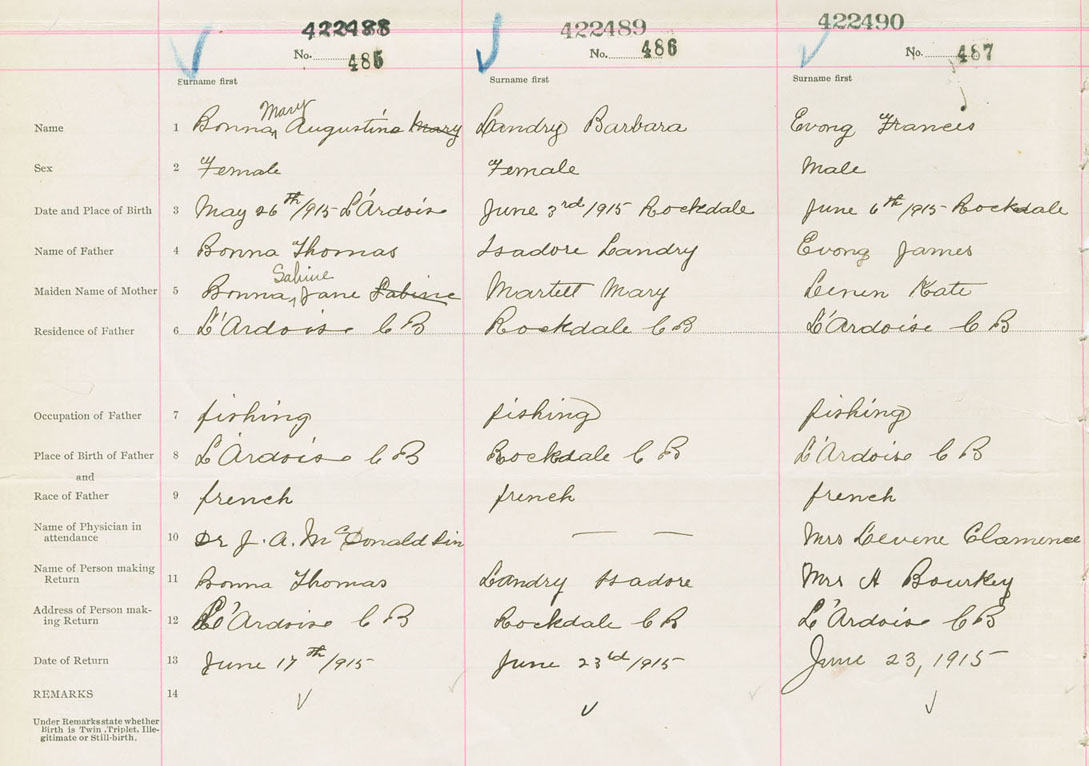 422488 422489 422490
No. 485 No. 486 No. 487
Surname first Surname first Surname first
Mary
Name 1 Bonna, Augustine Mary Landry Barbara Evong Francis
Sex 2 Female Female Male
Date and Place of Birth 3 May 26th/915 L'Ardoise June 3rd/915 Rockdale June 6th/915 Rockdale
Name of Father 4 Bonna Thomas Isadore Landry Evong James
Sabine
Maiden Name of Mother 5 Bonna, Jane Sabine Martell Mary Kate
Residence of Father 6 L'Ardoise C B Rockdale C B L'Ardoise C B
Occupation of Father 7 fishing fishing fishing
Place of Birth of Father 8 L'Ardoise C B Rockdale C B L'Ardoise C B
and
Race of Father 9 french french french
Name of Physician in
attendance 10 Dr J. A. McDonald — — Mrs Levene Clamence
Name of Person making
Return 11 Bonna Thomas Landry Isadore Mrs H Bourkey
Address of Person mak-
ing Return 12 L'Ardoise C B Rockdale C B L'Ardoise C B
Date of Return 13 June 17th/915 June 23rd/915 June 23, 1915
REMARKS 14
Under Remarks state whether
Birth is Twin, Triplet, Ille-
gitimate or Still-birth.